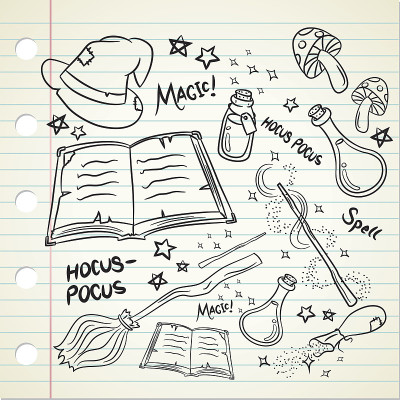 MAGIC!
HOCUS POCUS
Spell
HOCUS-
POCUS
MAGIC!